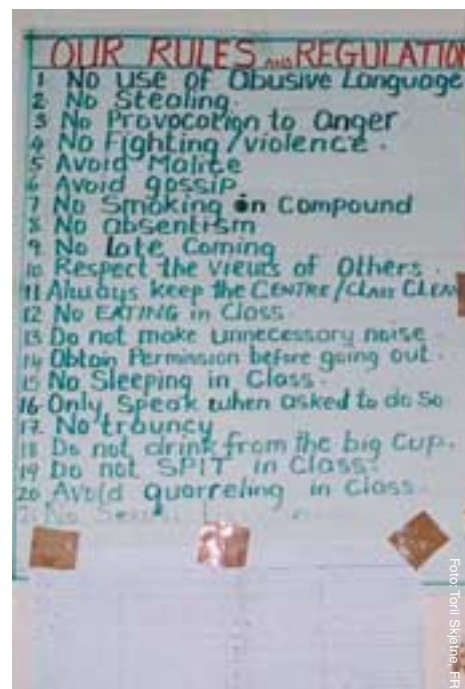 OUR RULES AND REGULATION
1 No use of Abusive Language
2 No Stealing.
3 No Provocation to Anger
4 No Fighting/violence.
5 Avoid Malice
6 Avoid gossip
7 No Smoking in Compound
8 No absentism
9 No Late Coming
10 Respect the views of Others.
11 Always keep the CENTRE/CLASS CLEAN
12 No EATING in Class
13 Do not make unnecessary noise.
14 Obtain Permission before going out.
15 No Sleeping in Class.
16 Only Speak when asked to do So
17. No trauncy
18 Do not drink from the big Cup.
19 Do not SPIT in Class.
20 Avoid quorreling in Class.
No
Foto: Toril Skjetne, FR